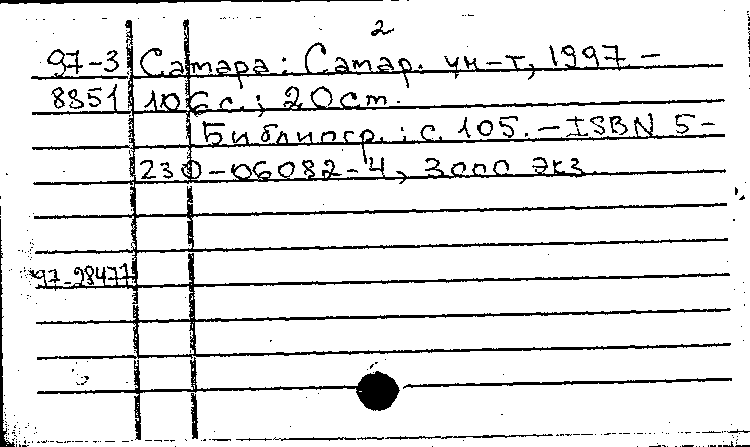 2
97-3 Самара: Самар. ун-т, 1997 –
8351 106 с.; 20 см.
Библиогр.: с. 105. – ISBN 5-
230-06082-4, 3000 экз.
97-28477